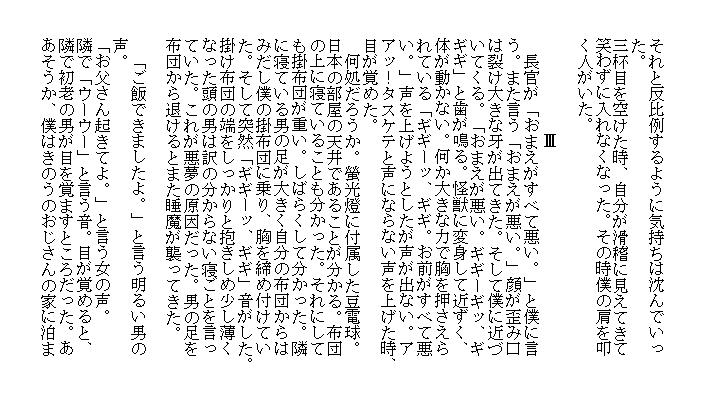 それと反比例するように気持ちは沈んでいっ
た。
三杯目を空けた時、自分が滑稽に見えてきて
笑わずに入れなくなった。その時僕の肩を叩
く人がいた。
Ⅲ
長官が「おまえがすべて悪い。」と僕に言
う。また言う「おまえが悪い。」顔が歪み口
は裂け大きな牙が出てきた。そして僕に近づ
いてくる。「おまえが悪い。ギギーギッ、ギ
ギギ」と歯が鳴る。怪獣に変身して近ずく、
体が動かない。何か大きな力で胸を押さえら
れている「ギギーッ、ギギ。お前がすべて悪
い。」声を上げようとしたが声が出ない。ア
アッータスケテと声にならない声を上げた時、
目が覚めた。
何処だろうか。螢光燈に付属した豆電球。
日本の部屋の天井であることが分かる。布団
の上に寝ていることも分かった。それにして
も掛布団が重い。しばらくして分かった。隣
に寝ている男の足が大きく自分の布団からは
みだし僕の掛布団に乗り、胸を締め付けてい
た。そして突然「ギギーッ、ギギ」音がした。
掛け布団の端をしっかりと抱きしめ少し薄く
なった頭の男は訳の分からない寝ごとを言っ
ていた。これが悪夢の原因だった。男の足を
布団から退けるとまた睡魔が襲ってきた。
「ご飯できましたよ。」と言う明るい男の
声。
「お父さん起きてよ。」と言う女の声。
隣で「ウーウー」と言う音。目が覚めると、
隣で初老の男が目を覚ますところだった。あ
あそうか、僕はきのうのおじさんの家に泊ま